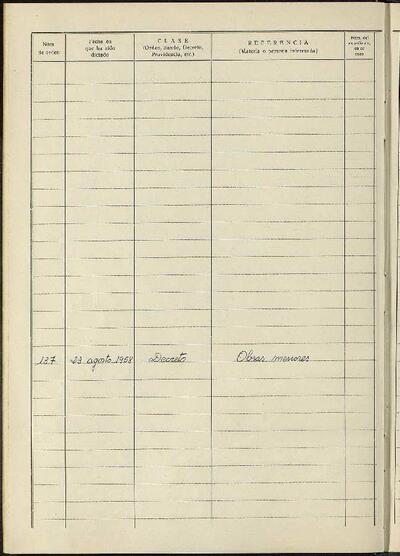 Núm.
de orden
Fecha en
que ha sido
dictado
CLASE
(Orden, Bando, Decreto,
Providencia, etc.)
REFERENCIA
(Materia o persona interesada)
Núm. del
expediente,
en su
caso
137 23 agosto 1958 Decreto Obras menores